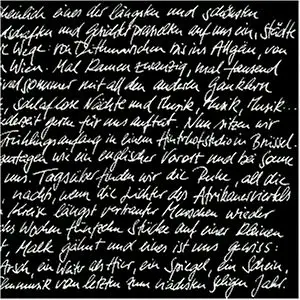 heinlich eines der längsten und schönsten
schaften und Gesichter prasselten auf uns ein, Städte
r Wege: von Dithmarschen bis ins Allgäu, von
Wien. Mal kamen zwanzig, mal tausend
sommer mit all den anderen Gauklern
schlaflose Nächte und Musik, Musik, Musik...
jederzeit gerne für uns auftat. Nun sitzen wir
Frühlingsanfang in einem Hinterhofstudio in Brüssel.
wie ein englischer Vorort und bei Sonne
uns. Tagsüber finden wir die Ruhe, all die
nachts, wenn die Lichter des Afrikanerviertels
Kreis längst vertrauter Menschen wieder
Wochen fünfzehn Stücke auf einer kleinen
t. Malk gähnt und eines ist uns gewiss:
Arsch, ein Tier, ein Spiegel, ein Schein,
vom letzten zum nächsten Jahr.